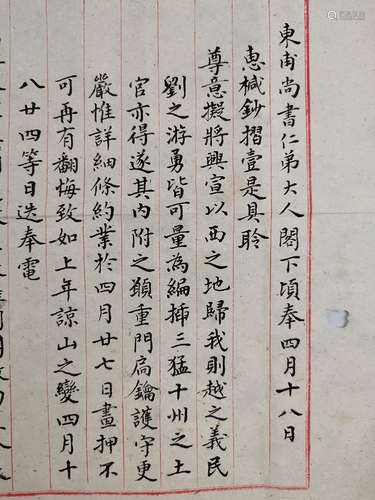 東甫尚書仁弟大人閣下頃奉四月十八日
惠椷鈔摺壹是具聆
尊意擬將興宣以西之地歸我則越之義民
劉之游勇皆可量為編插三猛十州之土
官亦得遂其內附之願重門扃鑰護守更
嚴惟詳細條約業於四月廿七日畫押不
可再有翻悔致如上年諒山之變四月十
八廿四等日迭奉電